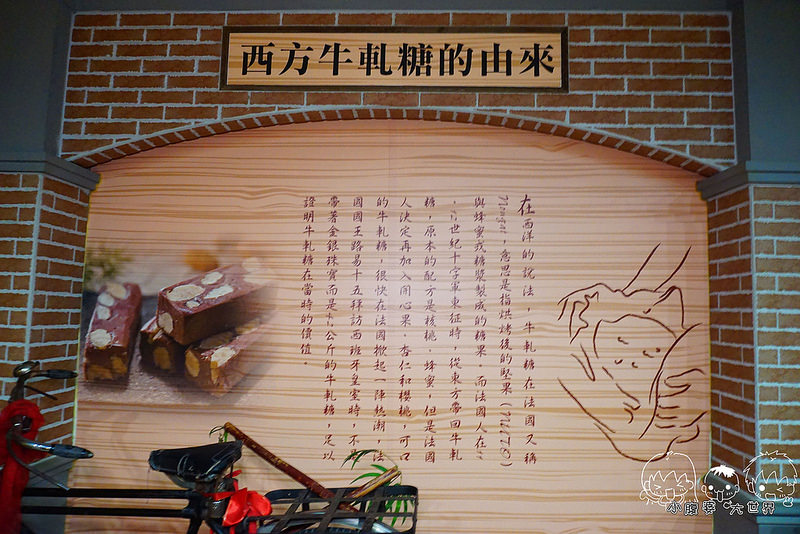 西方牛軋糖的由來
在西洋的說法，牛軋糖在法國又稱
Nougat，意思是指烘烤後的堅果(NUTO)
與蜂蜜或糖漿製成的糖果。而法國人在
世紀十字軍東征時，從東方帶回牛軋
糖，原本的配方是核桃、蜂蜜，但是法國
人決定再加入開心果、杏仁和櫻桃，可口
的牛軋糖，很快在法國掀起一陣熱潮，法
國國王路易十五拜訪西班牙皇室時，不
帶著金銀珠寶而是公斤的牛軋糖，足以
證明牛軋糖在當時的價值。
小腹婆 大世界